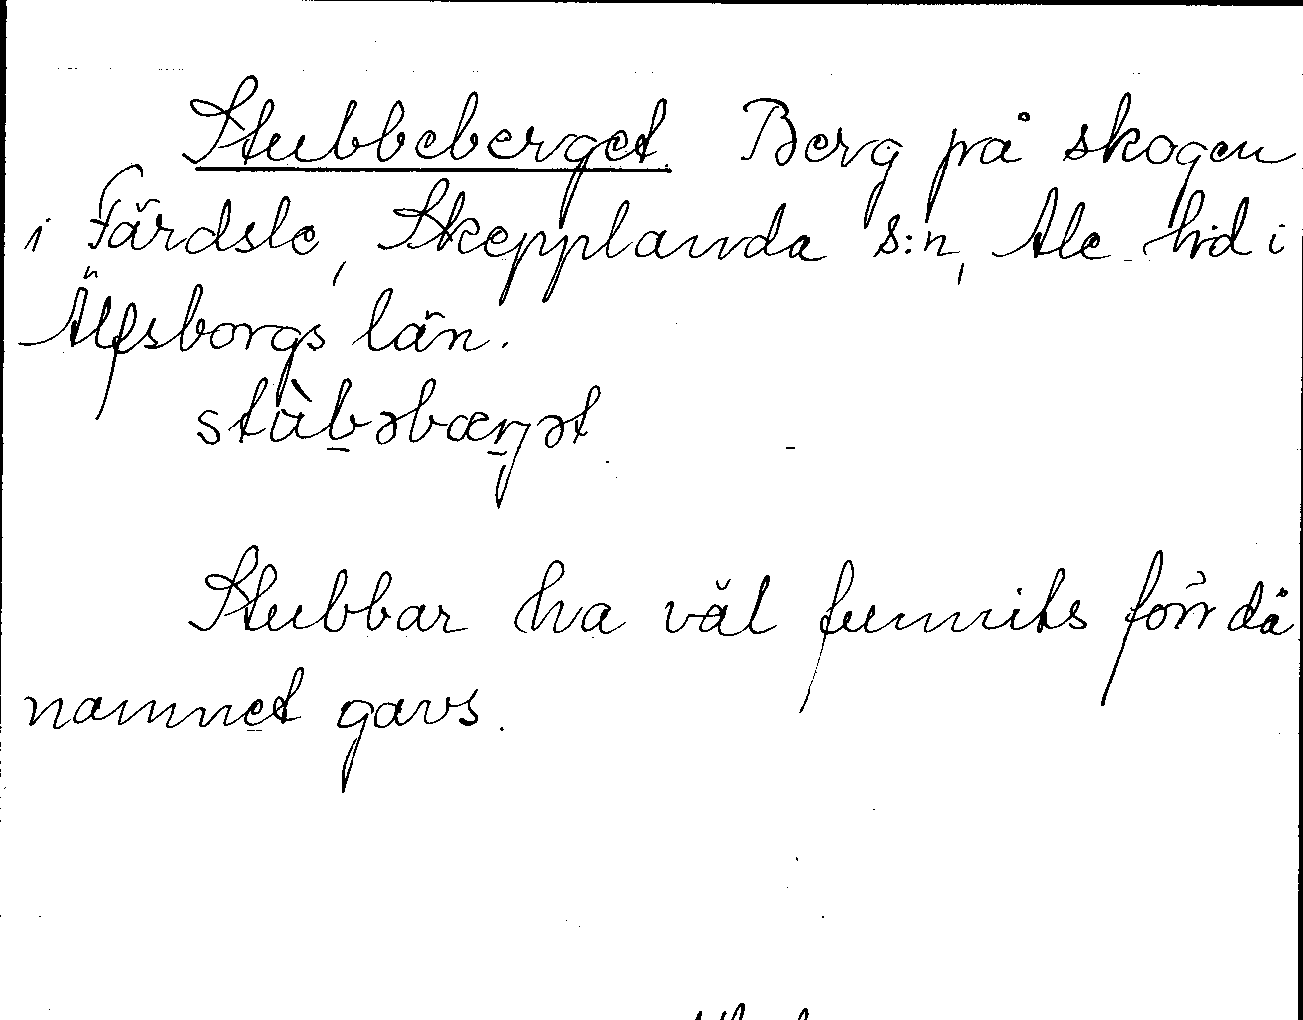 Stubbeberget. Berg på skogen
i Färdsle, Skepplanda s:n, Ale hd i
Älfsborgs län.
stùbəbærjət
Stubbar ha väl funnits förr då
namnet gavs.